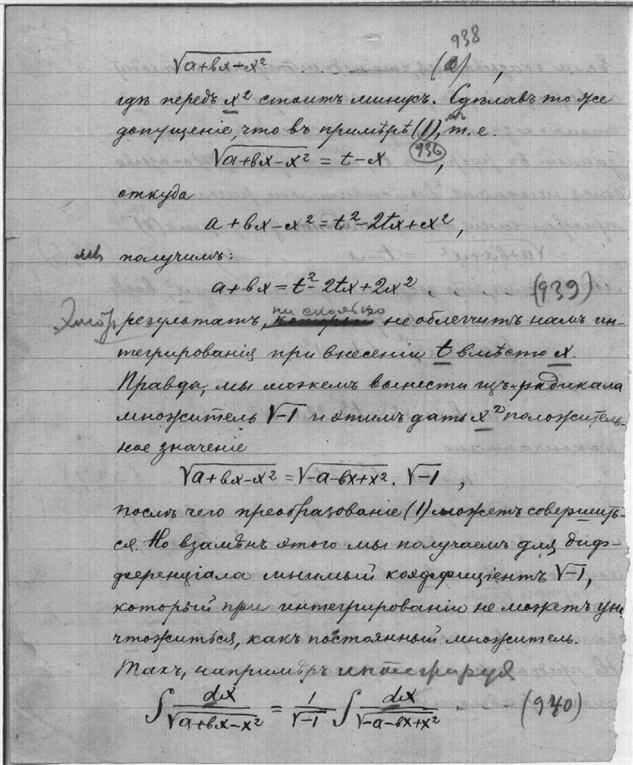 938
√a+bx-x² . . . . . (a) ,
гдѣ передъ x² стоитъ минусъ. Сдѣлавъ то же
допущеніе, что въ примѣрѣ (1), т. е.
√a+bx-x² = t-x , 936
откуда
a+bx-x² = t²-2tx+x²,
мы получимъ:
a+bx = t²-2tx+2x² . . . . (939)
Этотъ результатъ, который не облегчитъ намъ ин-
тегрированія при внесеніи t вмѣсто x.
Правда, мы можемъ вынести изъ-радикала
множитель √-1 и этимъ дать x² положитель-
ное значеніе
√a+bx-x² = √-a-bx+x² . √-1 ,
послѣ чего преобразованіе (1) можетъ совершить-
ся. Но взамѣнъ этого мы получаемъ для диф-
ференціала мнимый коэффиціентъ √-1,
который при интегрированіи не можетъ уни
чтожиться, какъ постоянный множитель.
Такъ, напримѣръ интегрируя
∫ dx/√a+bx-x² = 1/√-1 ∫ dx/√-a-bx+x² (940)